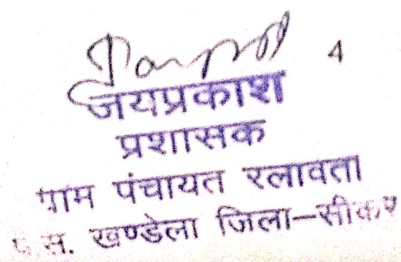 4
जयप्रकाश
प्रशासक
ग्राम पंचायत रलावता
पं.स. खण्डेला जिला-सीकर